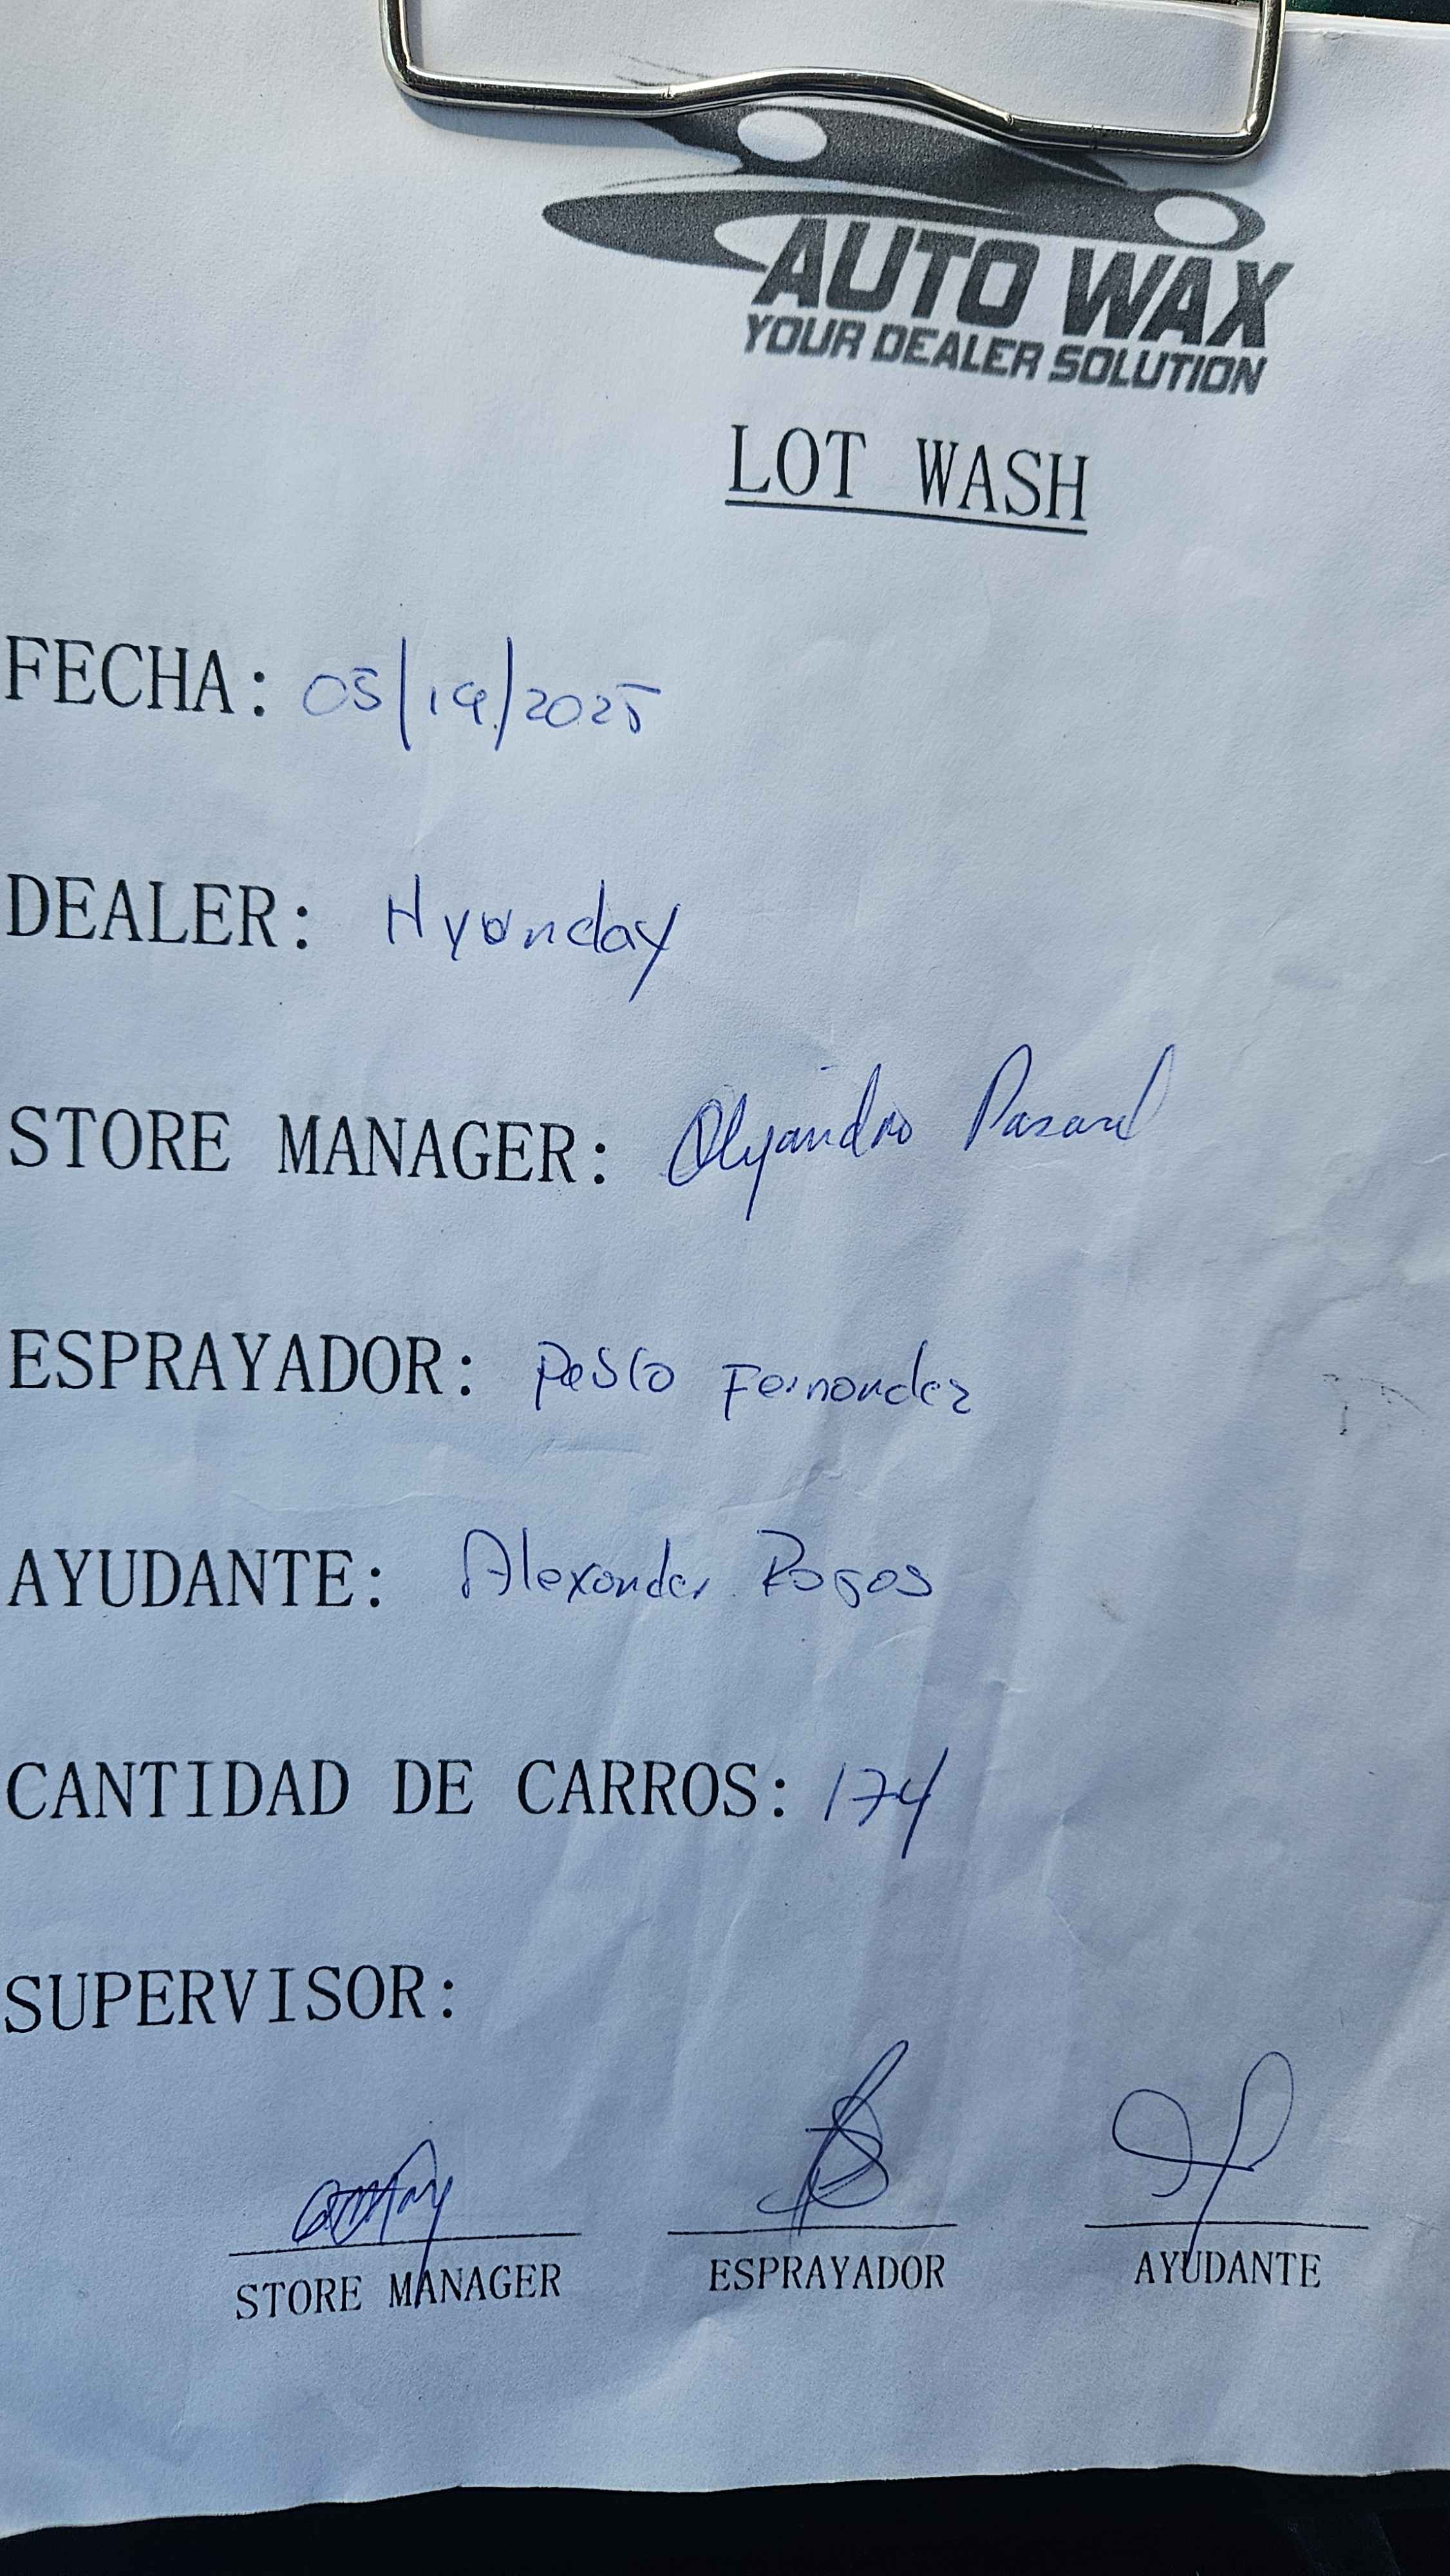 AUTO WAX
YOUR DEALER SOLUTION
LOT WASH
FECHA: 05/19/2025
DEALER: Hyunday
STORE MANAGER: Alejandro
ESPRAYADOR: Pablo Fernandez
AYUDANTE: Alexander
CANTIDAD DE CARROS: 174
SUPERVISOR:
STORE MANAGER ESPRAYADOR AYUDANTE